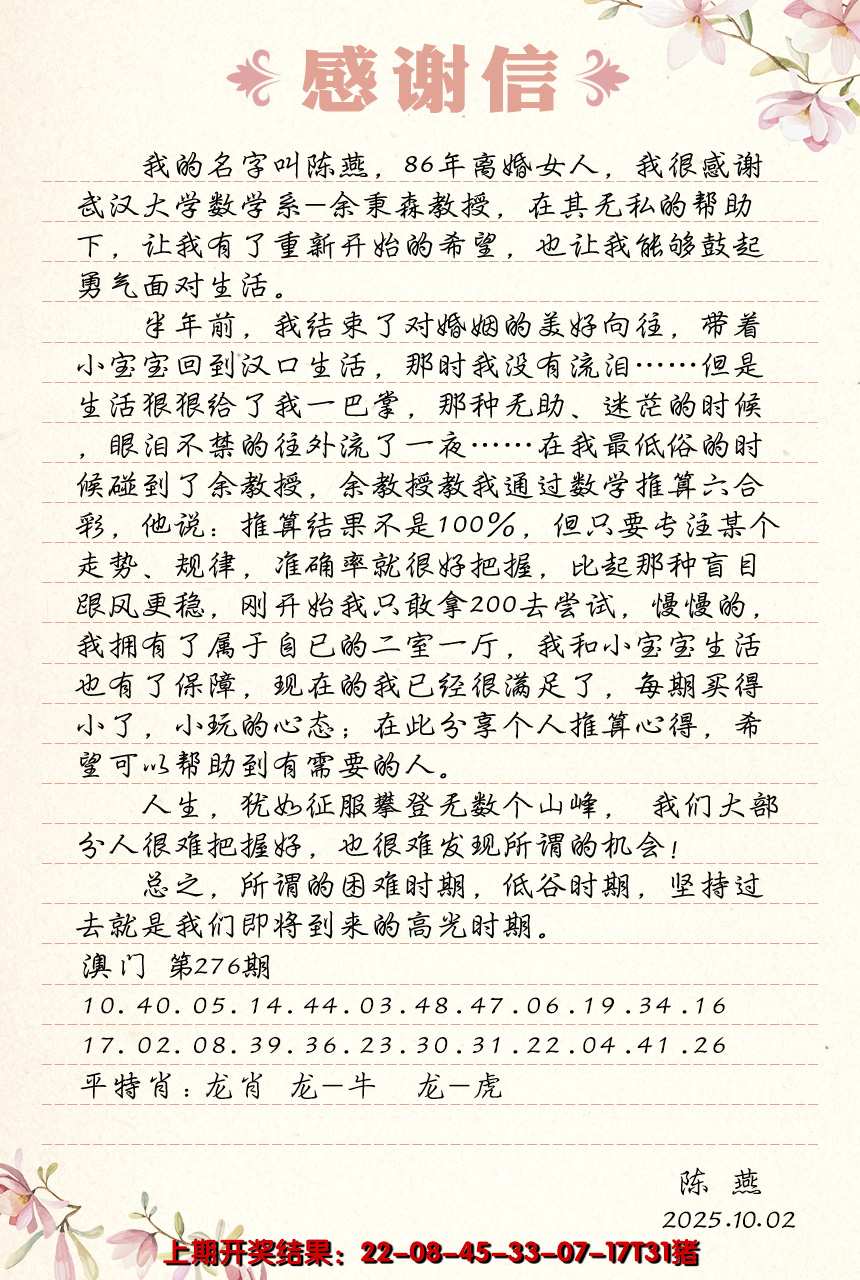 感谢信
我的名字叫陈燕，86年离婚女人，我很感谢
武汉大学数学系—余秉森教授，在其无私的帮助
下，让我有了重新开始的希望，也让我能够鼓起
勇气面对生活。
半年前，我结束了对婚姻的美好向往，带着
小宝宝回到汉口生活，那时我没有流泪……但是
生活狠狠给了我一巴掌，那种无助、迷茫的时候
，眼泪不禁的往外流了一夜……在我最低俗的时
候碰到了余教授，余教授教我通过数学推算六合
彩，他说：推算结果不是100%，但只要专注某个
走势、规律，准确率就很好把握，比起那种盲目
跟风更稳，刚开始我只敢拿200去尝试，慢慢的，
我拥有了属于自已的二室一厅，我和小宝宝生活
也有了保障，现在的我已经很满足了，每期买得
小了，小玩的心态；在此分享个人推算心得，希
望可以帮助到有需要的人。
人生，犹如征服攀登无数个山峰， 我们大部
分人很难把握好，也很难发现所谓的机会！
总之，所谓的困难时期，低谷时期，坚持过
去就是我们即将到来的高光时期。
澳门 第276期
10.40.05.14.44.03.48.47.06.19.34.16
17.02.08.39.36.23.30.31.22.04.41.26
平特肖：龙肖 龙—牛 龙—虎
陈 燕
2025.10.02
上期开奖结果：22-08-45-33-07-17T31猪